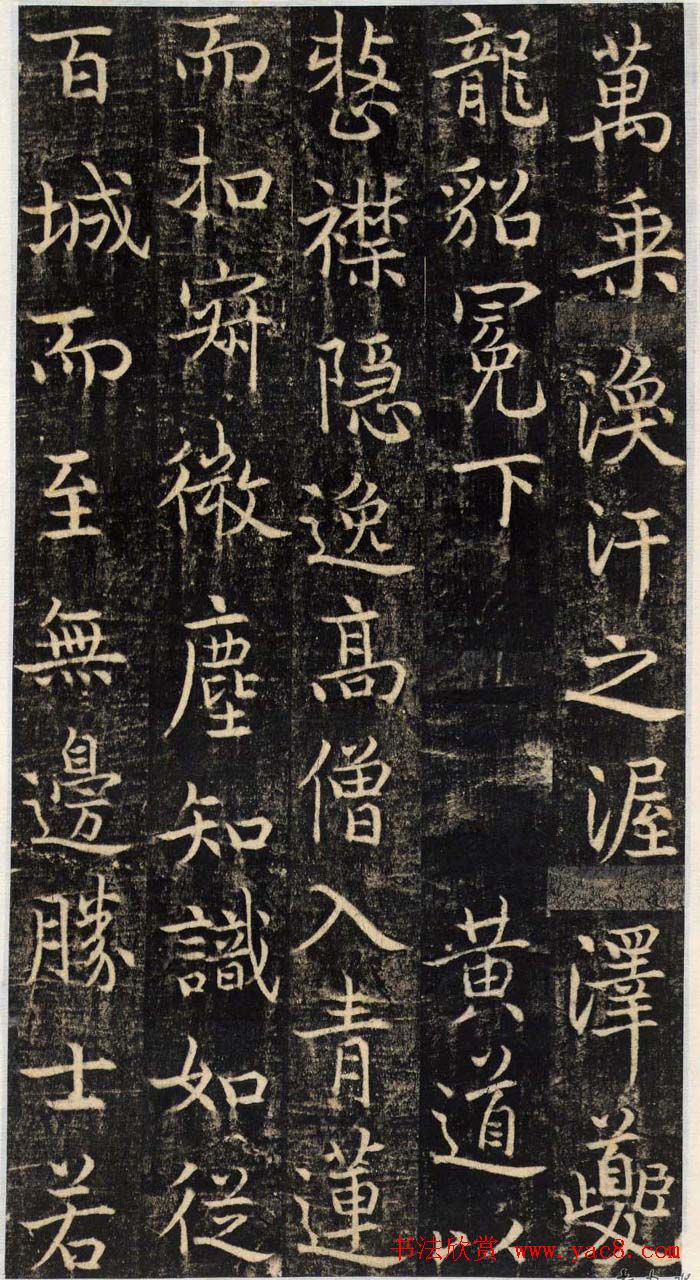 萬乘渙汗之渥澤夔
龍貂冕下黃道以
整襟隱逸高僧入青蓮
而扣寂微塵知識如從
百城而至無邊勝士若
书法欣赏 www.yac8.com